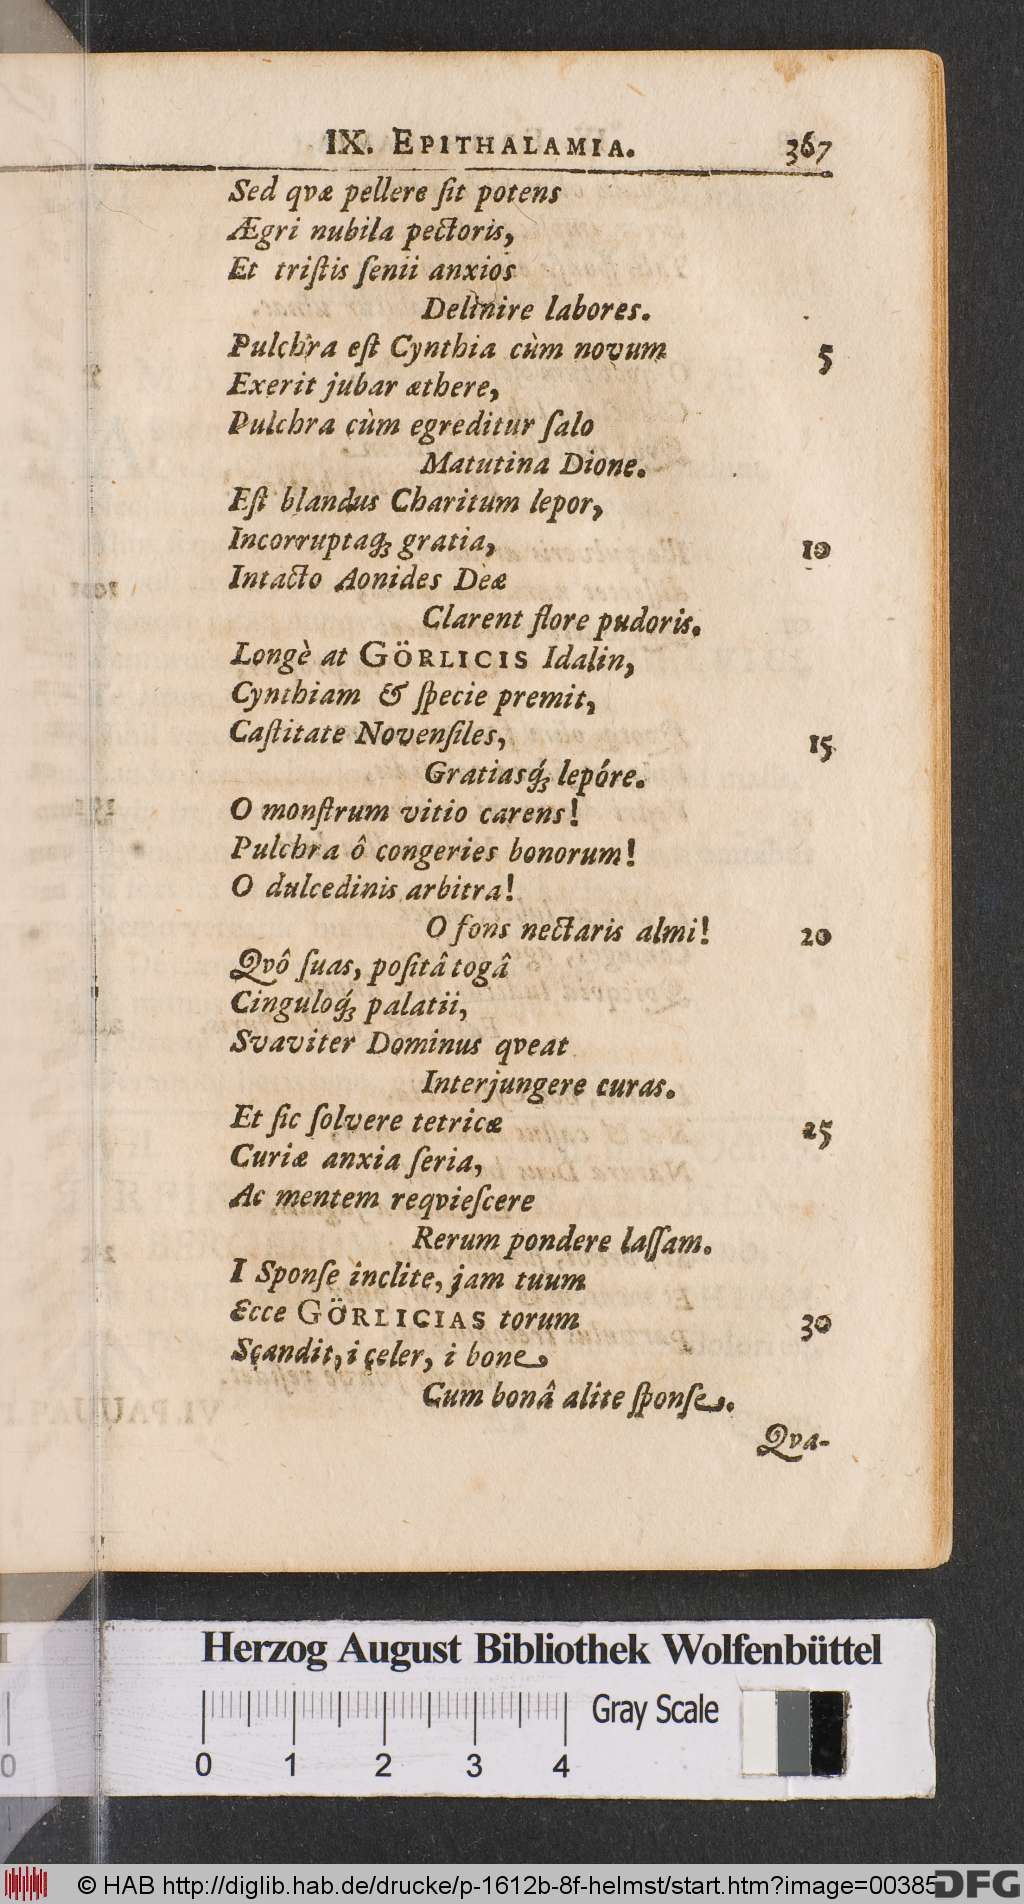 IX. EPITHALAMIA. 367
Sed qvæ pellere ſit potens
Ægri nubila pectoris,
Et triſtis ſenii anxios
Delinire labores.
Pulchra eſt Cynthia cùm novum 5
Exerit jubar æthere,
Pulchra cùm egreditur ſalo
Matutina Dione.
Eſt blandus Charitum lepor,
Incorruptaq́; gratia, 10
Intacto Aonides Deæ
Clarent flore pudoris.
Longè at GÖRLICIS Idalin,
Cynthiam & ſpecie premit,
Caſtitate Novenſiles, 15
Gratiasq́; lepóre.
O monſtrum vitio carens!
Pulchra ô congeries bonorum!
O dulcedinis arbitra!
O fons nectaris almi! 20
Qvô ſuas, poſitâ togâ
Cinguloq́; palatii,
Svaviter Dominus qveat
Interjungere curas.
Et ſic ſolvere tetricæ 25
Curiæ anxia ſeria,
Ac mentem reqvieſcere
Rerum pondere laſſam.
I Sponſe inclite, jam tuum
Ecce GÖRLICIAS torum 30
Scandit, i celer, i bone
Cum bonâ alite ſponſe.
Qva-
Herzog August Bibliothek Wolfenbüttel
Gray Scale
0 1 2 3 4
0
© HAB http://diglib.hab.de/drucke/p-1612b-8f-helmst/start.htm?image=00385
DFG